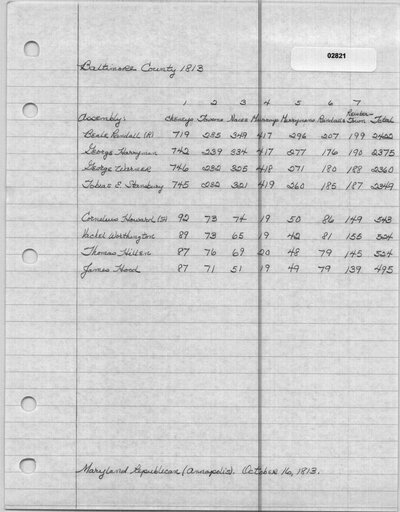 02821
Baltimore County 1813
1 2 3 4 5 6 7
Reister-
Assembly: Cheneys Towsons Naces Murrays Merrymans Randalls Town Total
Beale Randall (R) 719 235 349 417 296 207 199 2422
George Harryman 742 239 334 417 277 176 190 2375
George Warner 746 232 325 418 271 180 188 2360
Tobias E. Stansbury 745 232 321 419 260 185 187 2349
Cornelius Howard (F) 92 73 74 19 50 86 149 543
Vachel Worthington 89 73 65 19 42 81 155 524
Thomas Hillen 87 76 69 20 48 79 145 524
James Hood 87 71 51 19 49 79 139 495
Maryland Republican (Annapolis). October 16, 1813.